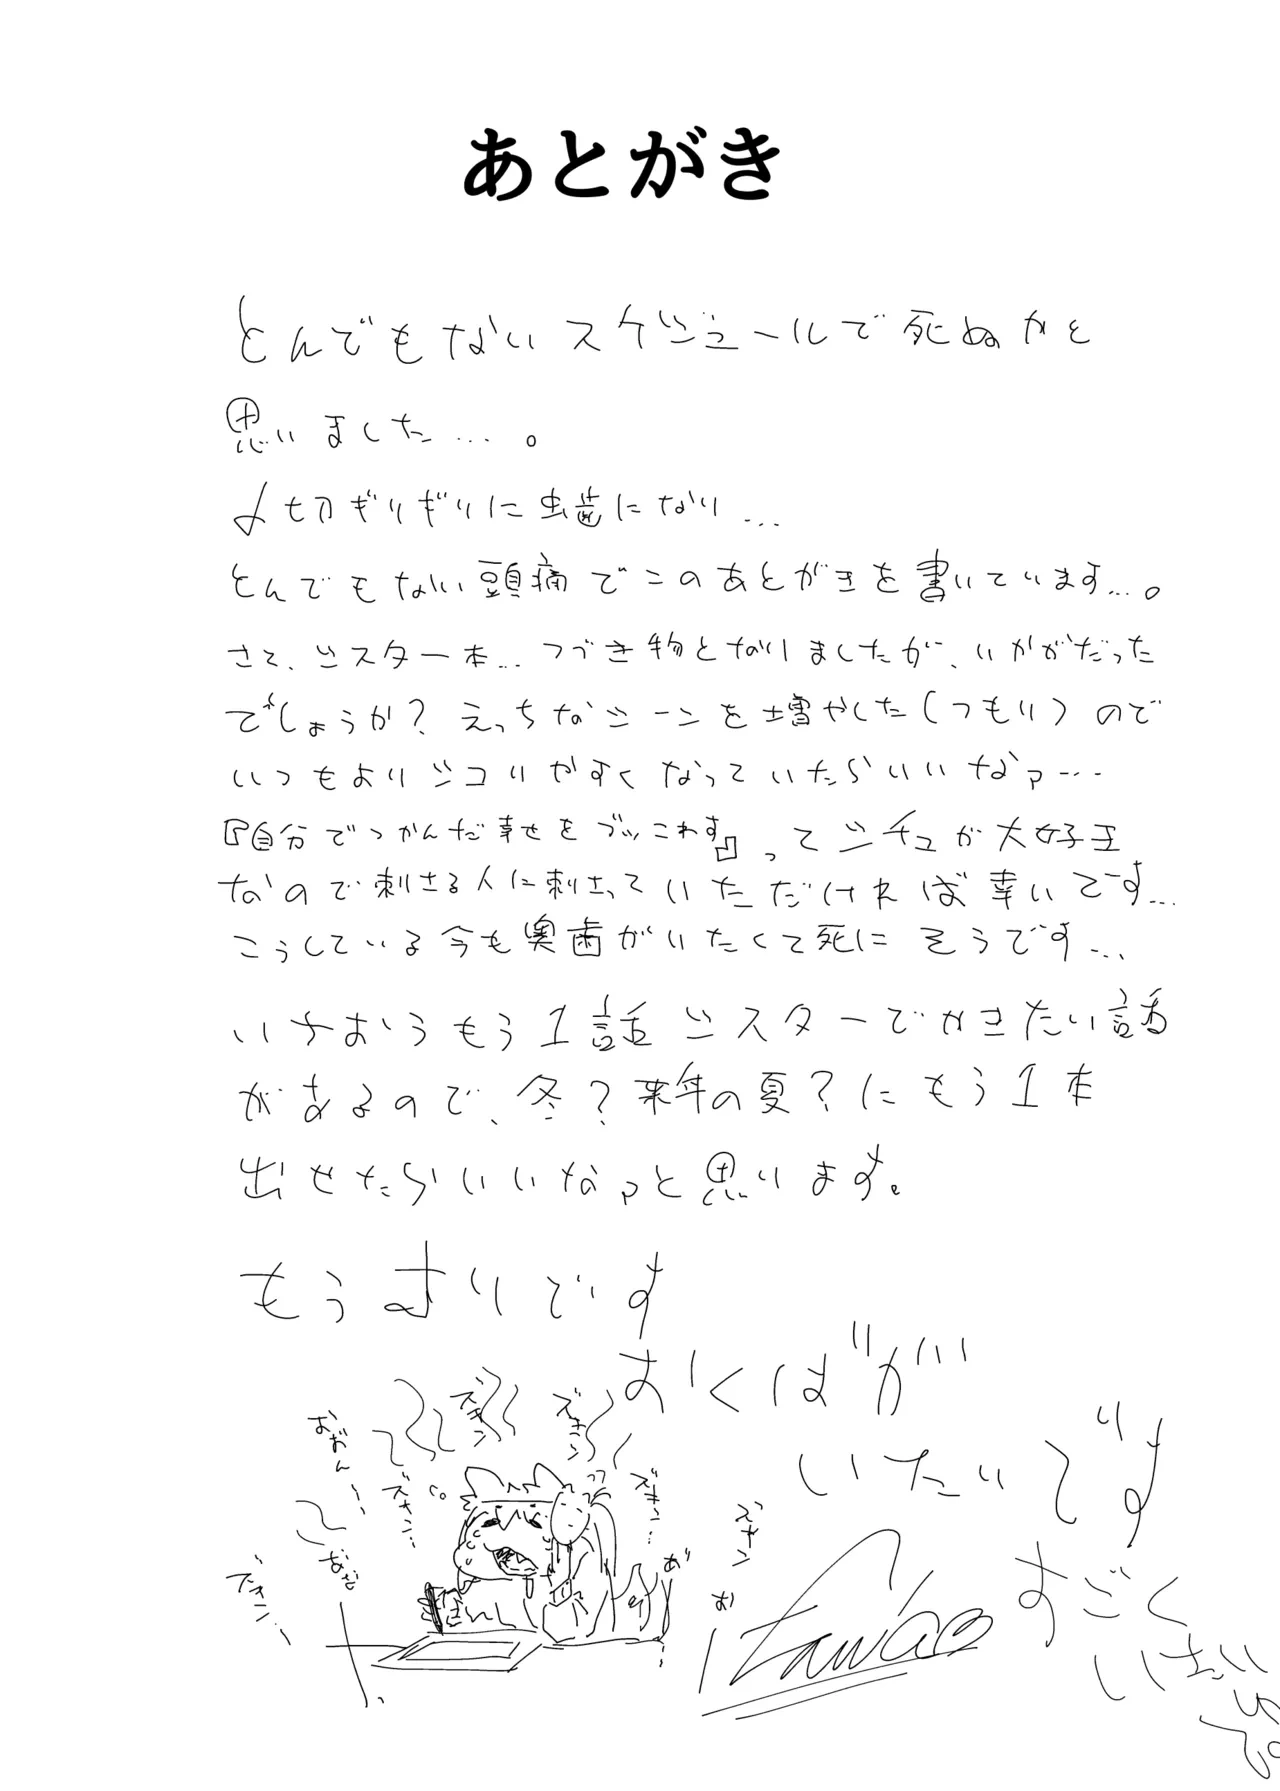 あとがき
とんでもないスケジュールで死ぬかと
思いました…。
〆切ギリギリに虫歯になり…
とんでもない頭痛でこのあとがきを書いています…。
さて、シスター本…つづき物となりましたが、いかがだった
でしょうか？えっちなシーンを増やした(つもり)ので
いつもよりシコりやすくなっていたらいいなァ…
『自分でつかんだ幸せをブッこわす』ってシチュが大好王
なので刺さる人に刺さっていただければ幸いです…
こうしている今も奥歯がいたくて死にそうです…
いちおうもう1話シスターでかきたい話
があるので、冬？来年の夏？にもう1本
出せたらいいなァと思います。
もうムリです
おくばが
いたいです
すごく
いたい
ズキン
ズキン
ズキン…
ズキン…
ズキン
おおん